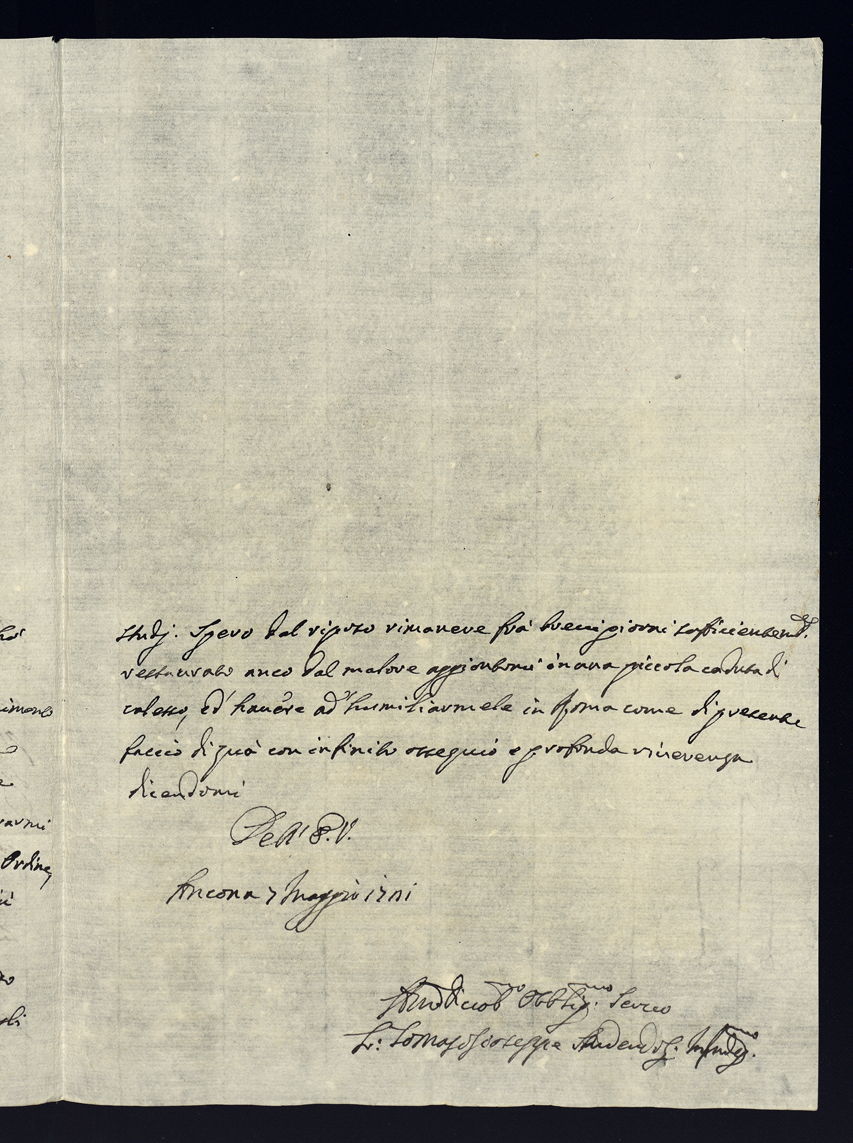 studj. Spero dal riposo rimanere frà brevi giorni
restaurato anco dal malore aggiontomi in una piccola caduta di
calesse, ed' havere ad' humiliarmele in Roma come di presente
faccio di quà con infinito ossequio e profonda riverenza
dicendomi
Dell' P. V.
Ancona 7 Maggio 1701
Obblig.mo Servo
Tomaso Gioseppe
imento
varmi
Ordine,